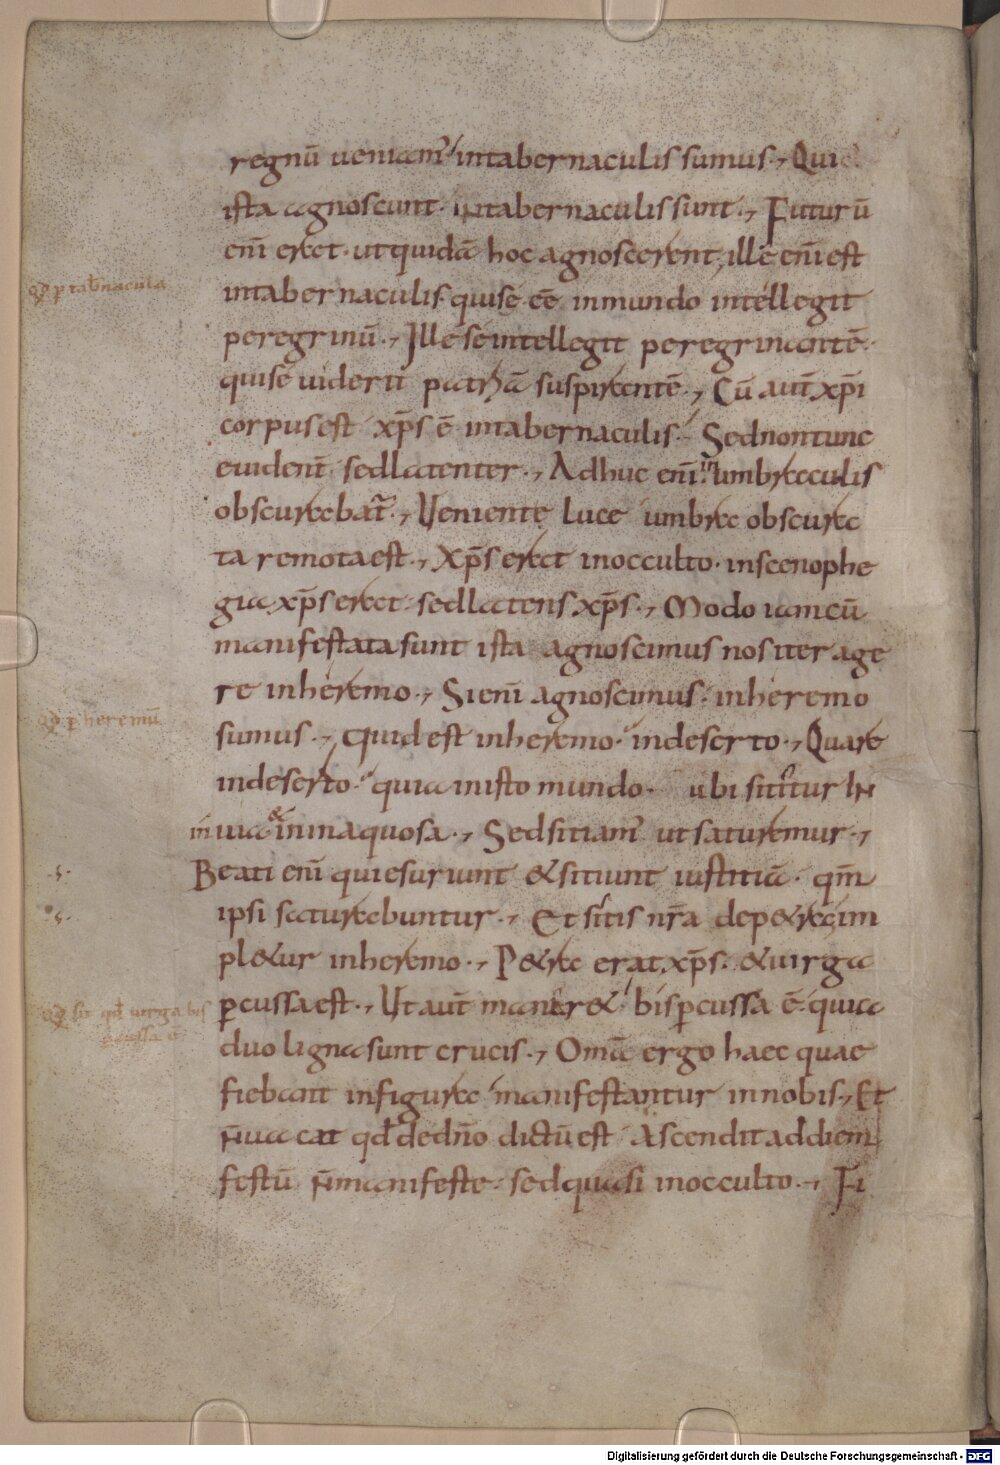 regnū ueniam᷒ intabernaculis sumus., Qui
ista agnoscunt· intabernaculis sunt., Futurū
enī erat· ut quidā hoc agnoscerent, ille enī est
qd̄ p tab̄nacula
intabernaculis· qui se eē inmundo intellegit
peregrinū., Ille se intellegit peregrinantē·
qui se uiderit patriā suspirantē., Cū aut̄ xp̄i
corpus est xp̄s ē intabernaculis· Sed non tunc
euident̄ sed latenter., Adhuc enī in umbraculis
obscurabat᷒., Ueniente luce umbra obscura
ta remota est., Xp̄s erat inocculto· in scenophe
gia xp̄s erat· sed latens xp̄s., Modo iam cū
manifestata sunt ista agnoscimus nos iter age
re inheremo., Si enī agnoscimus· inheremo
qd̄ p heremū
sumus., Quid est inheremo· indeserto., Quare
indeserto· quia inisto mundo· ubi sititur In
in uia & in inaquosa., Sed sitiam᷒ ut saturemur.,
Beati enī qui esuriunt & sitiunt iustitiā· qm̄
ipsi saturabuntur., Et sitis nr̄a depetra im
pletur inheremo., Petra erat xp̄s· & uirga
qd̄ sit qd̄ uirga bis
pcussa ē
p̱cussa est., Ut aut̄ manaret bis p̱cussa ē· quia
duo ligna sunt crucis., Omā ergo haec quae
fiebant infigura manifestantur innobis., Et
n̄ uacat qd̄ dedn̄o dictū est Ascendit addiem
festū n̄ manifeste· sed quasi inocculto., Fi
Digitalisierung gefördert durch die Deutsche Forschungsgemeinschaft - DFG